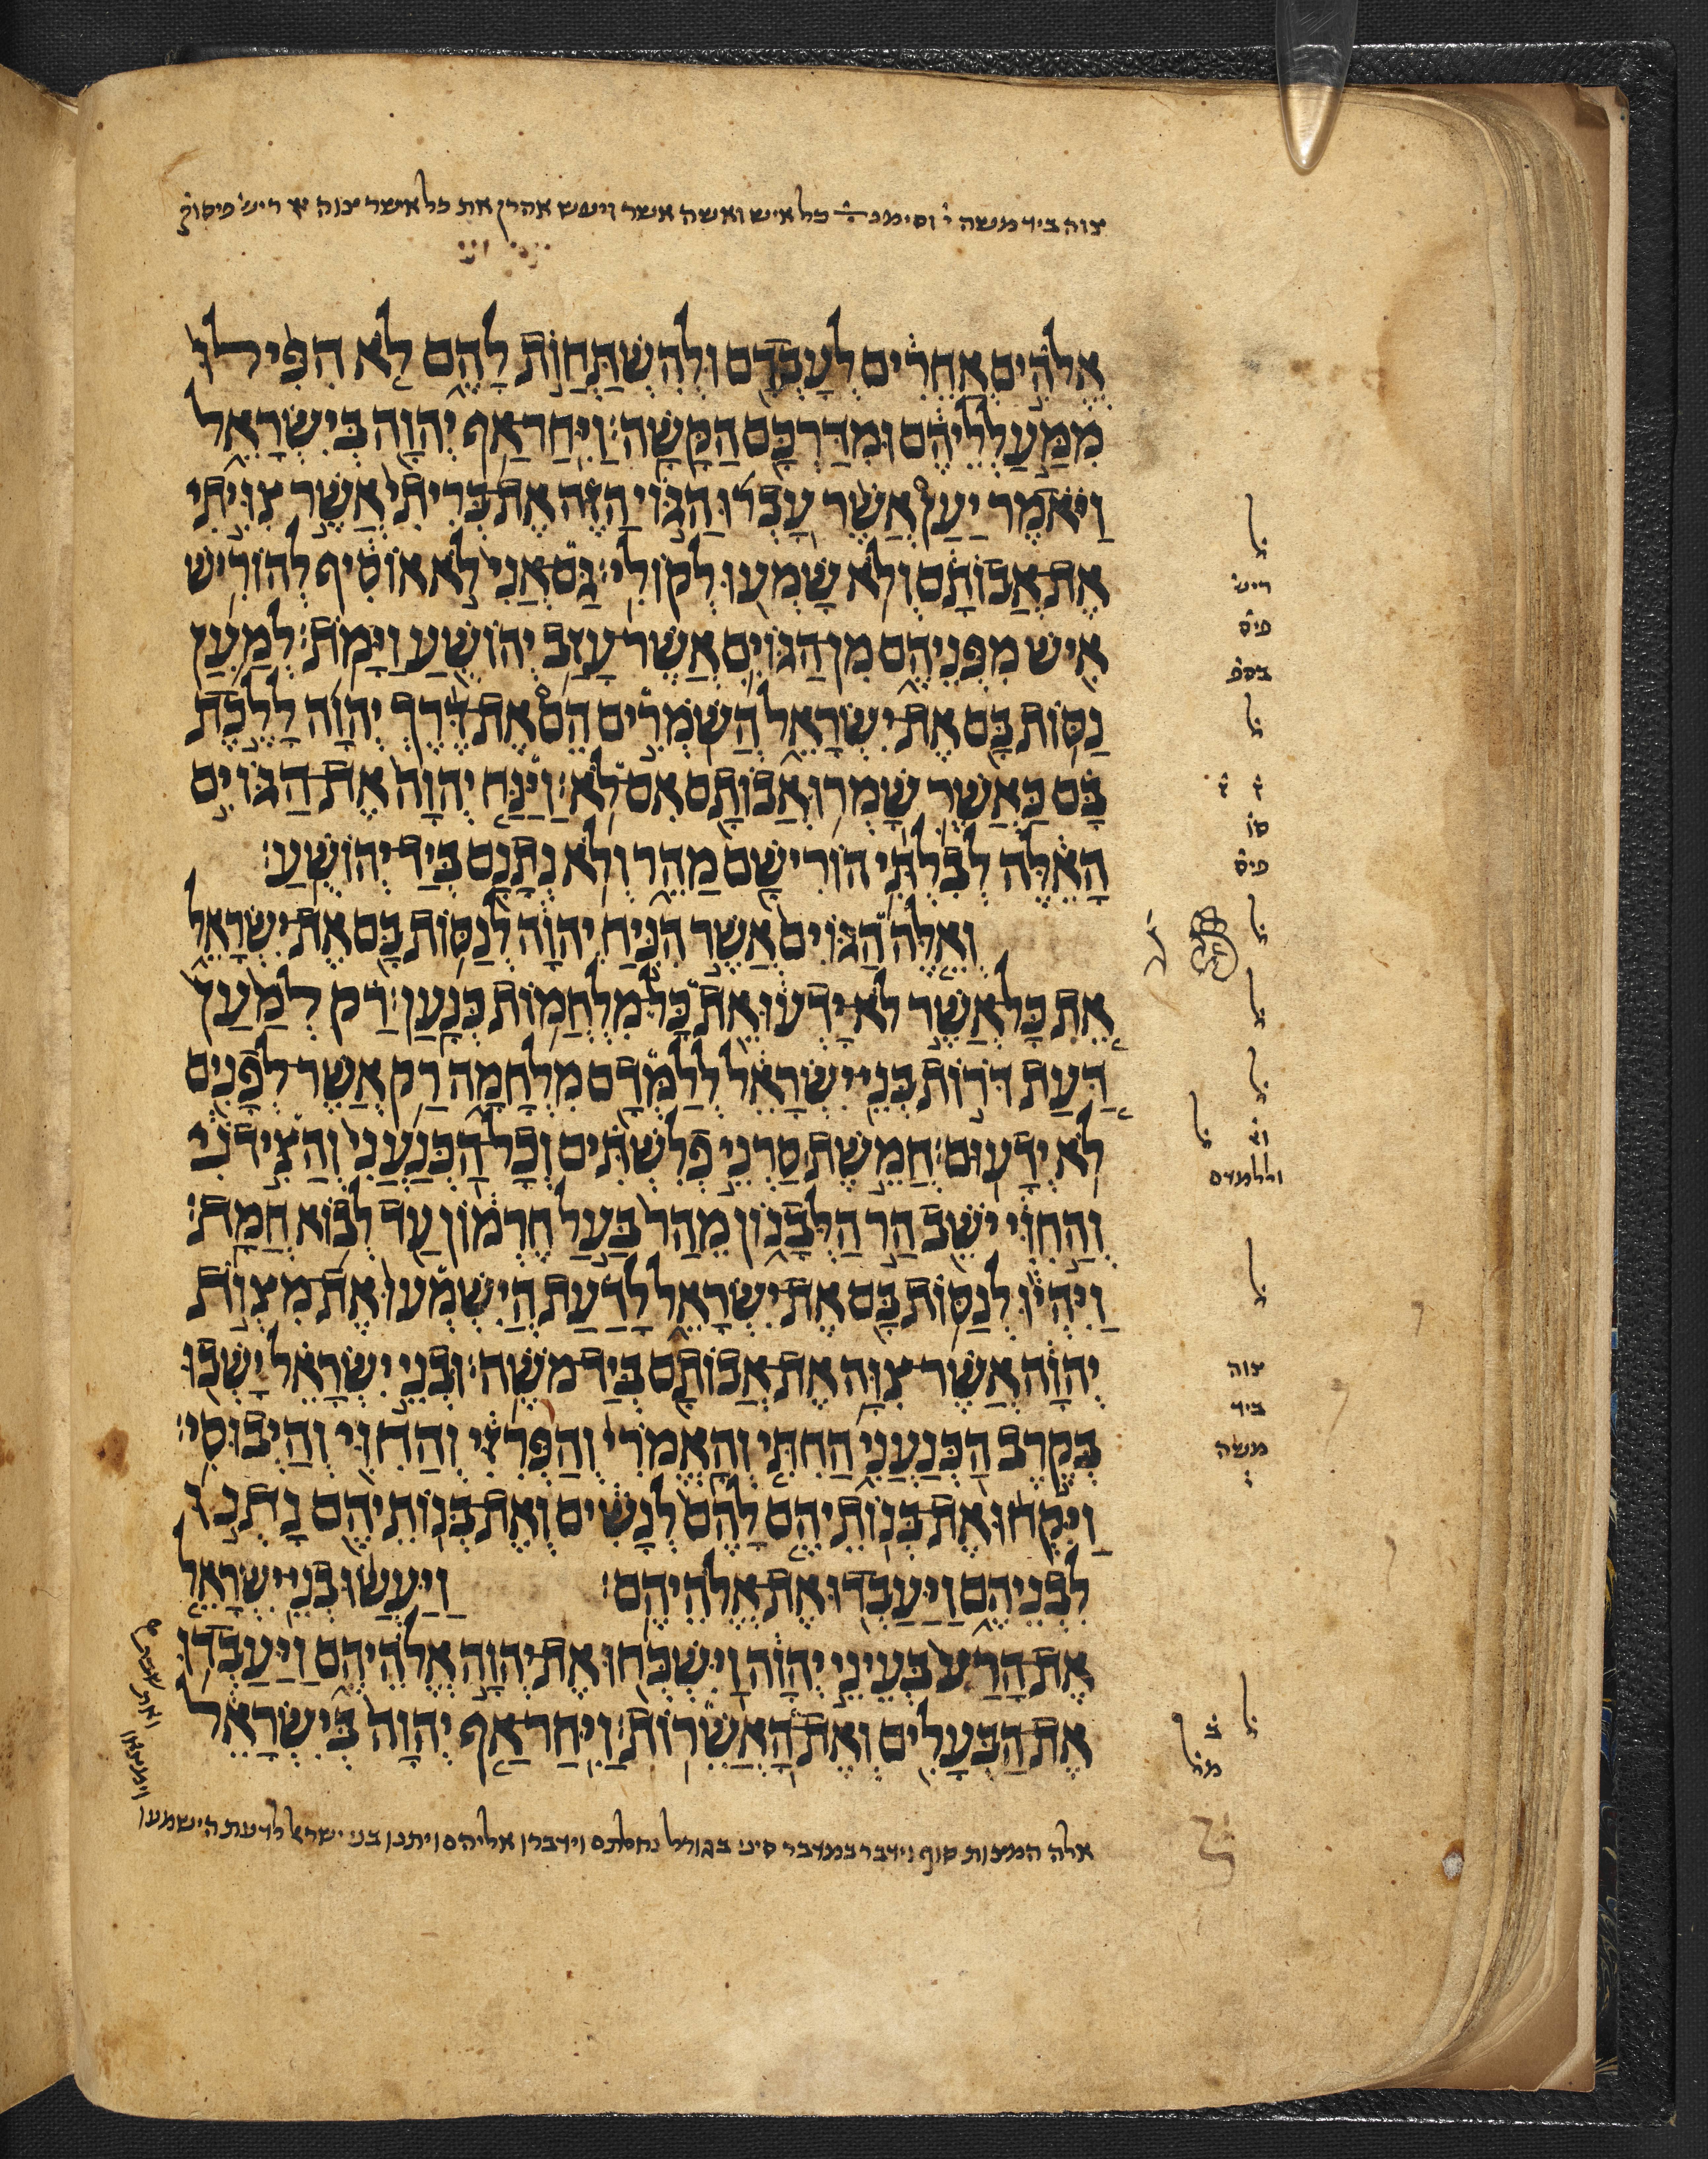 צוה ביד משה י וסימנ כל איש ואשה אשר ויעש אהרן את כל אשר צוה יד ריש פיסוק
אֱלֹהִים אֲחֵרִים לְעָבְדָם וּלְהִשְׁתַּחֲוֹת לָהֶם לֹא הִפִּילוּ
מִמַּעַלְלֵיהֶם וּמִדַּרְכָּם הַקָּשָׁה׃ וַיִּחַר אַף יְהוָה בְּיִשְׂרָאֵל
וַיֹּאמֶר יַעַן אֲשֶׁר עָבְרוּ הַגּוֹי הַזֶּה אֶת בְּרִיתִי אֲשֶׁר צִוִּיתִי
אֶת אֲבוֹתָם וְלֹא שָׁמְעוּ לְקוֹלִי׃ גַּם אֲנִי לֹא אוֹסִיף לְהוֹרִישׁ
אִישׁ מִפְּנֵיהֶם מִן הַגּוֹיִם אֲשֶׁר עָזַב יְהוֹשֻׁעַ וַיָּמֹת׃ לְמַעַן
נַסּוֹת בָּם אֶת יִשְׂרָאֵל הֲשֹׁמְרִים הֵם אֶת דֶּרֶךְ יְהוָה לָלֶכֶת
בָּם כַּאֲשֶׁר שָׁמְרוּ אֲבוֹתָם אִם לֹא׃ וַיַּנַּח יְהוָה אֶת הַגּוֹיִם
הָאֵלֶּה לְבִלְתִּי הוֹרִישָׁם מַהֵר וְלֹא נְתָנָם בְּיַד יְהוֹשֻׁעַ׃
וְאֵלֶּה הַגּוֹיִם אֲשֶׁר הִנִּיחַ יְהוָה לְנַסּוֹת בָּם אֶת יִשְׂרָאֵל
אֵת כָּל אֲשֶׁר לֹא יָדְעוּ אֵת כָּל מִלְחֲמוֹת כְּנָעַן׃ רַק לְמַעַן
דַּעַת דֹּרוֹת בְּנֵי יִשְׂרָאֵל לְלַמְּדָם מִלְחָמָה רַק אֲשֶׁר לְפָנִים
לֹא יְדָעוּם׃ חֲמֵשֶׁת סַרְנֵי פְלִשְׁתִּים וְכָל הַכְּנַעֲנִי וְהַצִּידֹנִי
וְהַחִוִּי יֹשֵׁב הַר הַלְּבָנוֹן מֵהַר בַּעַל חֶרְמוֹן עַד לְבוֹא חֲמָת׃
וַיִּהְיוּ לְנַסּוֹת בָּם אֶת יִשְׂרָאֵל לָדַעַת הֲיִשְׁמְעוּ אֶת מִצְוֹת
יְהוָה אֲשֶׁר צִוָּה אֶת אֲבוֹתָם בְּיַד מֹשֶׁה׃ וּבְנֵי יִשְׂרָאֵל יָשְׁבוּ
בְּקֶרֶב הַכְּנַעֲנִי הַחִתִּי וְהָאֱמֹרִי וְהַפְּרִזִּי וְהַחִוִּי וְהַיְבוּסִי׃
וַיִּקְחוּ אֶת בְּנוֹתֵיהֶם לָהֶם לְנָשִׁים וְאֶת בְּנוֹתֵיהֶם נָתְנוּ
לִבְנֵיהֶם וַיַּעַבְדוּ אֶת אֱלֹהֵיהֶם׃ וַיַּעֲשׂוּ בְנֵי יִשְׂרָאֵל
אֶת הָרַע בְּעֵינֵי יְהוָה וַיִּשְׁכְּחוּ אֶת יְהוָה אֱלֹהֵיהֶם וַיַּעַבְדוּ
אֶת הַבְּעָלִים וְאֶת הָאֲשֵׁרוֹת׃ וַיִּחַר אַף יְהוָה בְּיִשְׂרָאֵל
אלה המצות סוף וידבר במדבר סיני בגורל נחלתם וידברו אליהם ויתנו בני ישראל לדעת הישמעו
ל
ריש
פיס
בספ
ל
סו
פיס
ל
ל
ל
ל
וללמדם
ל
צוה
ביד
משה
י
ל
ב
מל